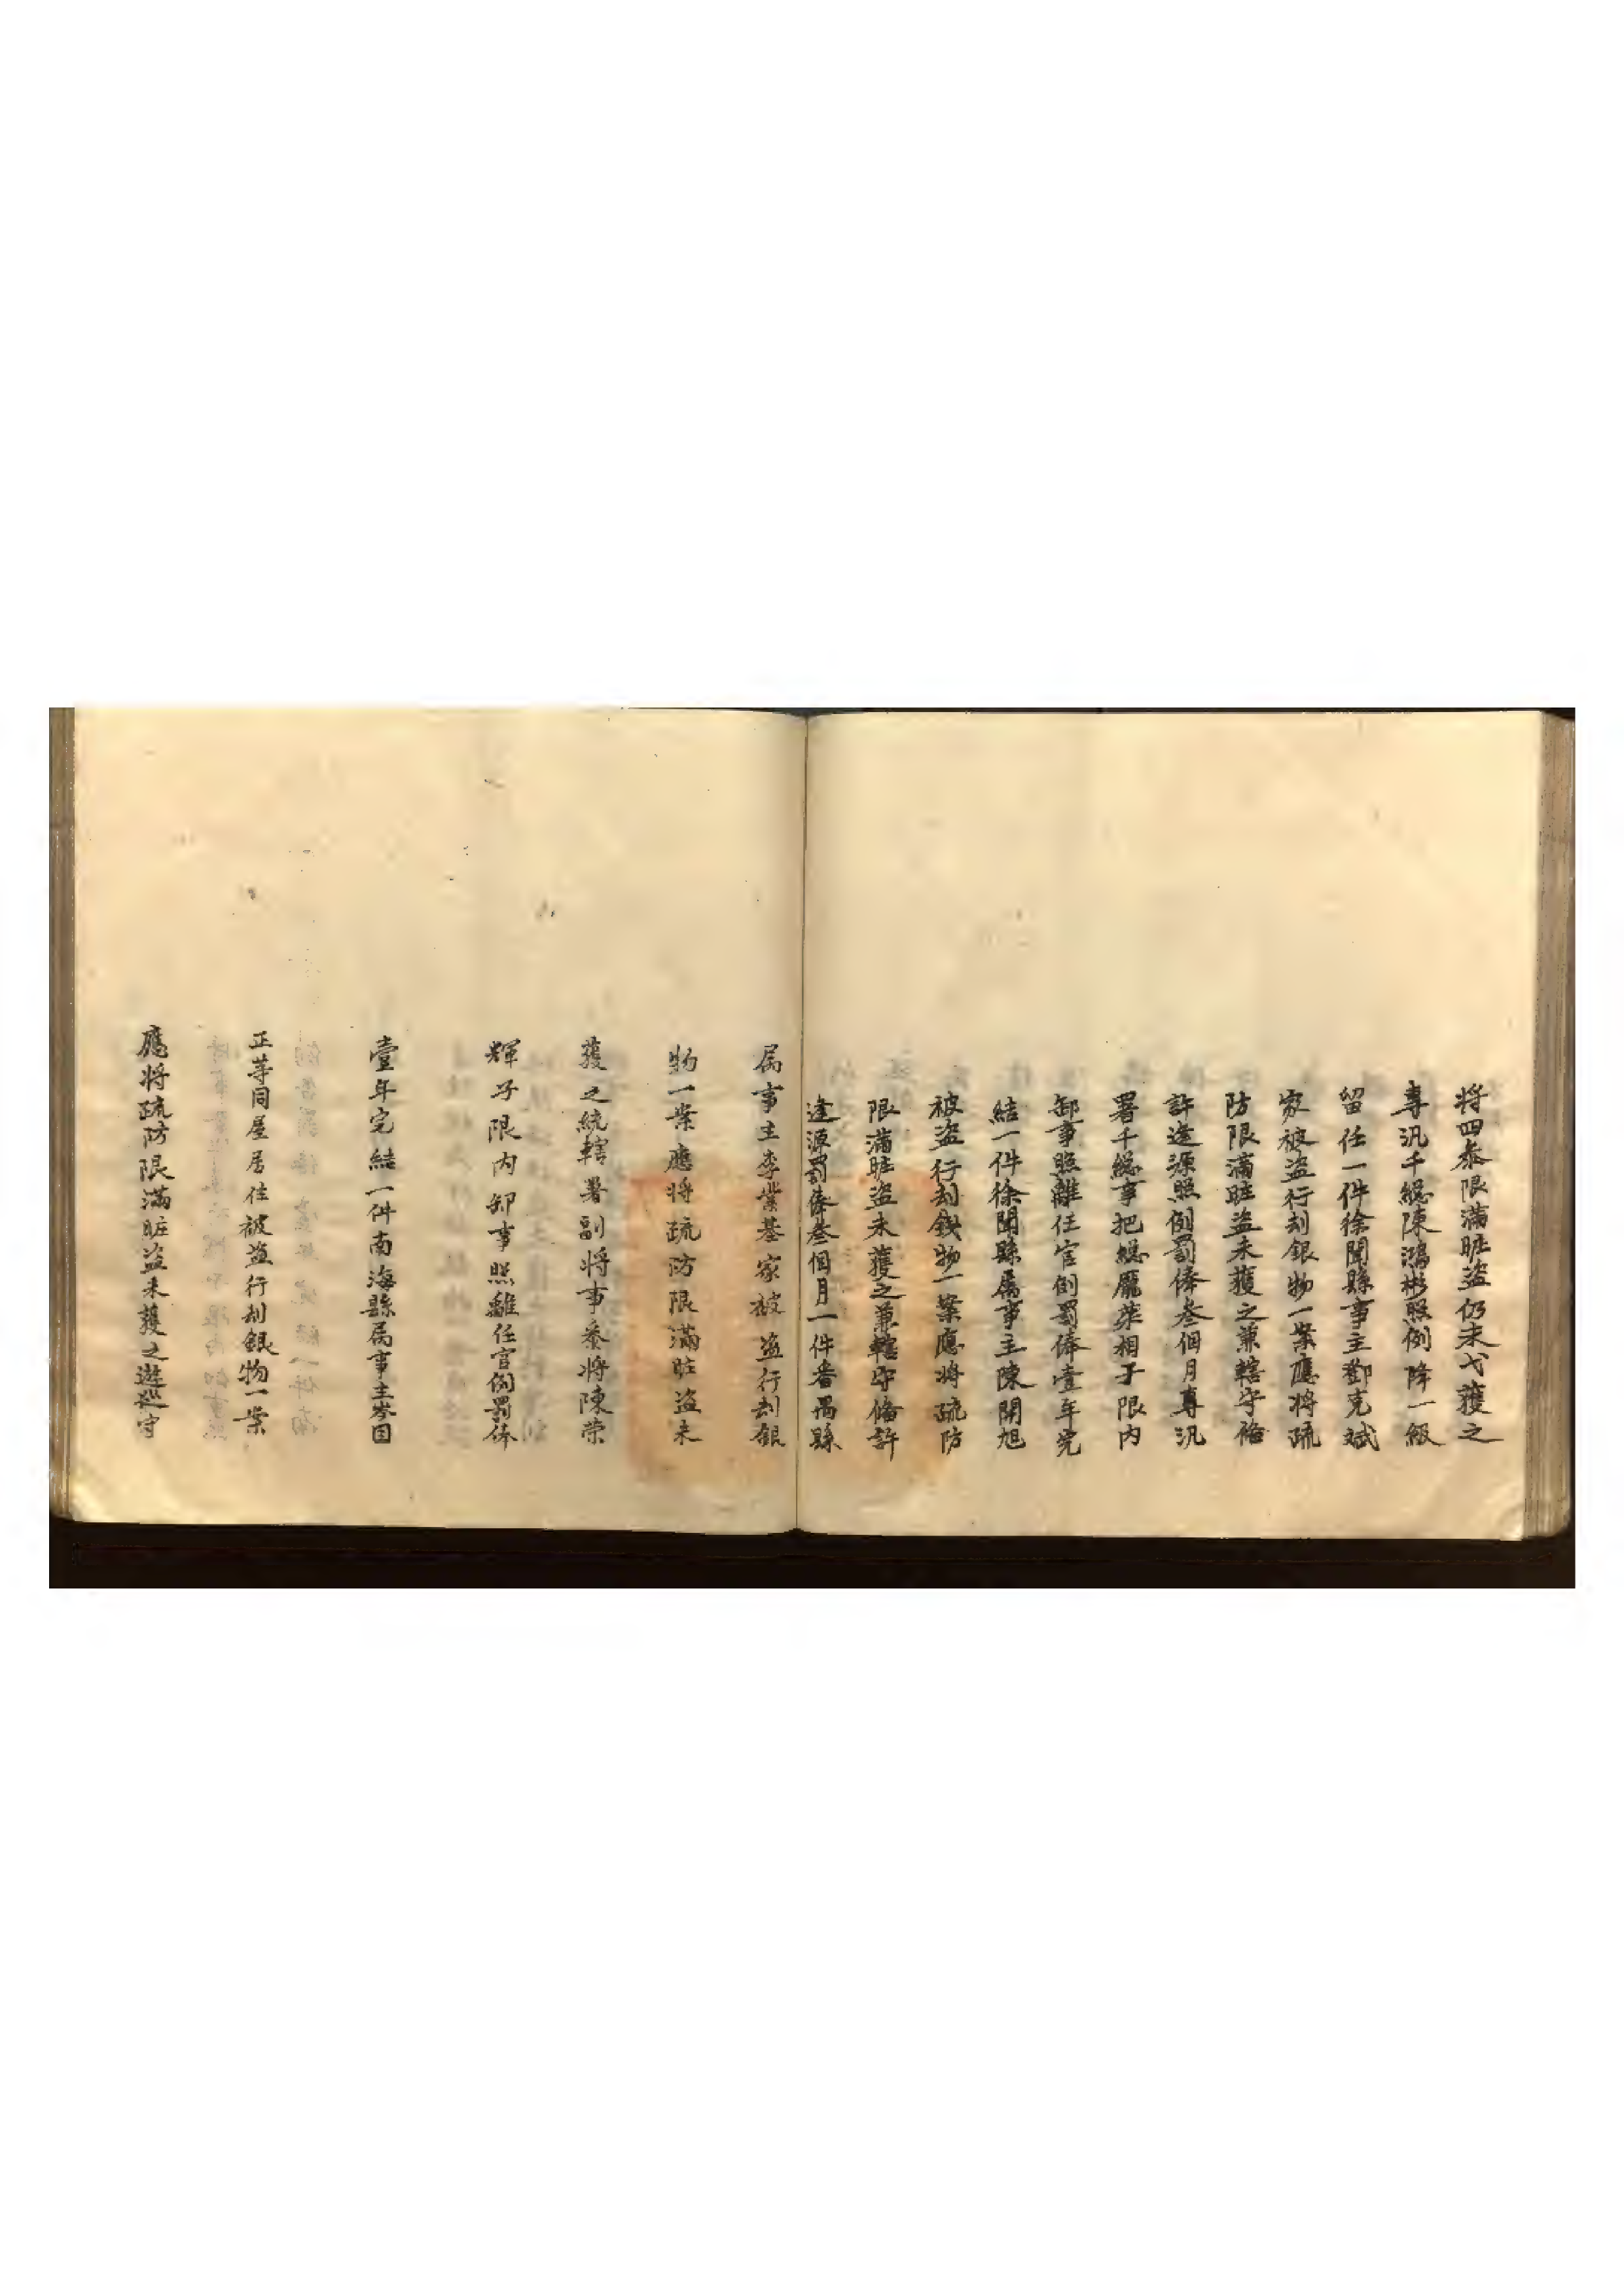 將四叅限滿賍盜仍未弋獲之
專汛千總陳鴻彬照例降一級
留任一件徐聞縣事主鄧克斌
家被盜行刦銀物一案應將疏
防限滿賍盜未獲之兼轄守俻
許逢源照例罰俸叁個月專汛
署千總事把總龎相于限内
卸事照離任官例罰俸壹年完
結一件徐聞縣屬事主陳開旭
被盜行刦銀物一案應將疏防
限滿賍盜未獲之兼轄守俻許
逢源罰俸叁個月一件番禺縣
屬事主李業基家被盜行刦銀
物一案應將疏防限滿賍盜未
獲之統轄署副將事叅將陳榮
輝于限内卸事照離任官例罰俸
壹年完結一件南海縣屬事主岑因
正等同屋居住被盜行刦銀物一案
應將疏防限滿賍盜未獲之遊巡守